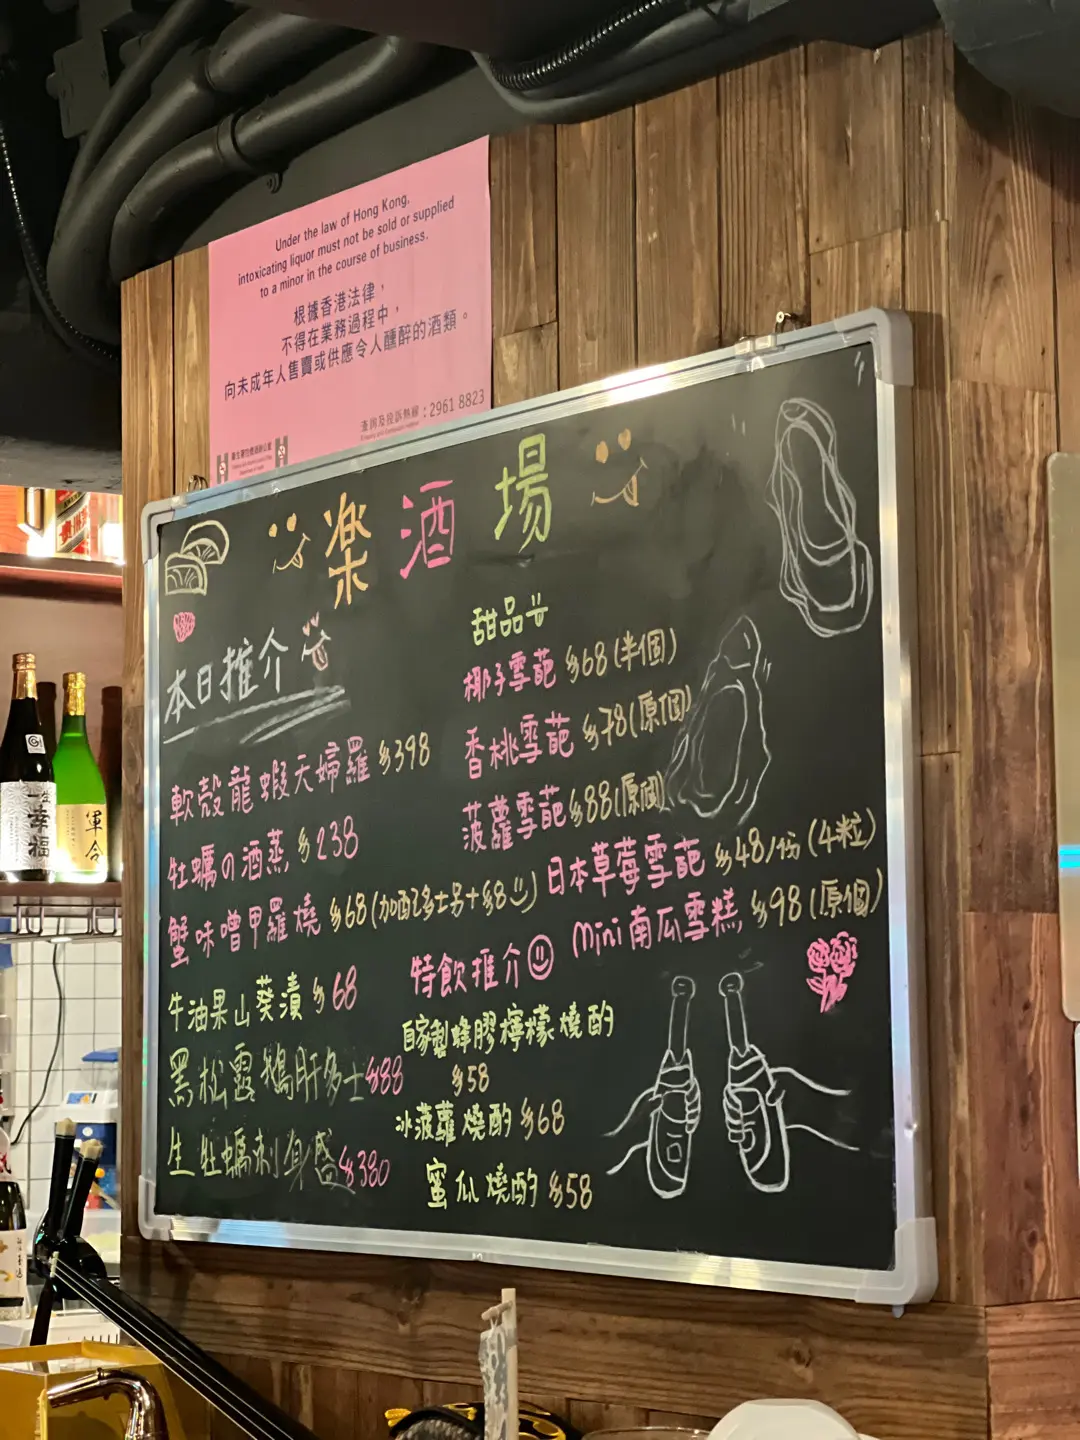 Under the law of Hong Kong,
intoxicating liquor must not be sold or supplied
to a minor in the course of business.
根據香港法律，
不得在業務過程中，
向未成年人售賣或供應令人醺醉的酒類。
查詢及投訴熱線：2961 8823
楽酒場
本日推介
軟殼龍蝦天婦羅 $398
牡蠣の酒蒸 $238
蟹味噌甲羅燒 $68(加配多士另+$8)
牛油果山葵漬 $68
黑松露鵝肝多士 $88
生牡蠣刺身盛 $380
甜品
椰子雪葩 $68(半個)
香桃雪葩 $78(原個)
菠蘿雪葩 $88(原個)
日本草莓雪葩 $48/份(4粒)
mini南瓜雪糕 $98(原個)
特飲推介
自家製蜂膠檸檬燒酌
$58
冰菠蘿燒酌 $68
蜜瓜燒酌 $58
一生幸福
軍令